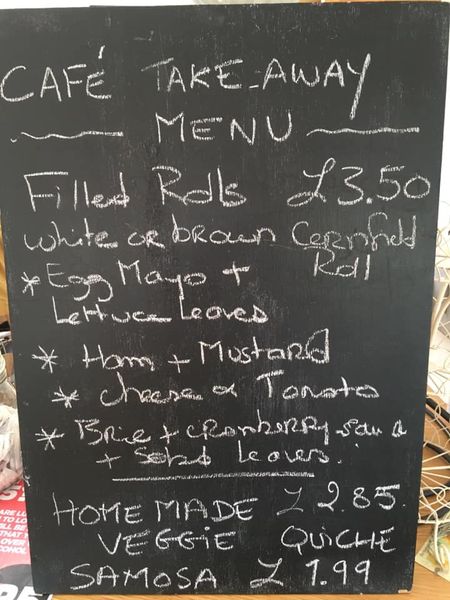 CAFÉ TAKE-AWAY
MENU
Filled Rolls £3.50
White or brown Cornfield
Roll
* Egg Mayo +
Lettuce Leaves
* Ham + Mustard
* Cheese & Tomato
* Brie + cranberry
+ Salad Leaves.
HOMEMADE £2.85
VEGGIE QUICHE
SAMOSA £1.99